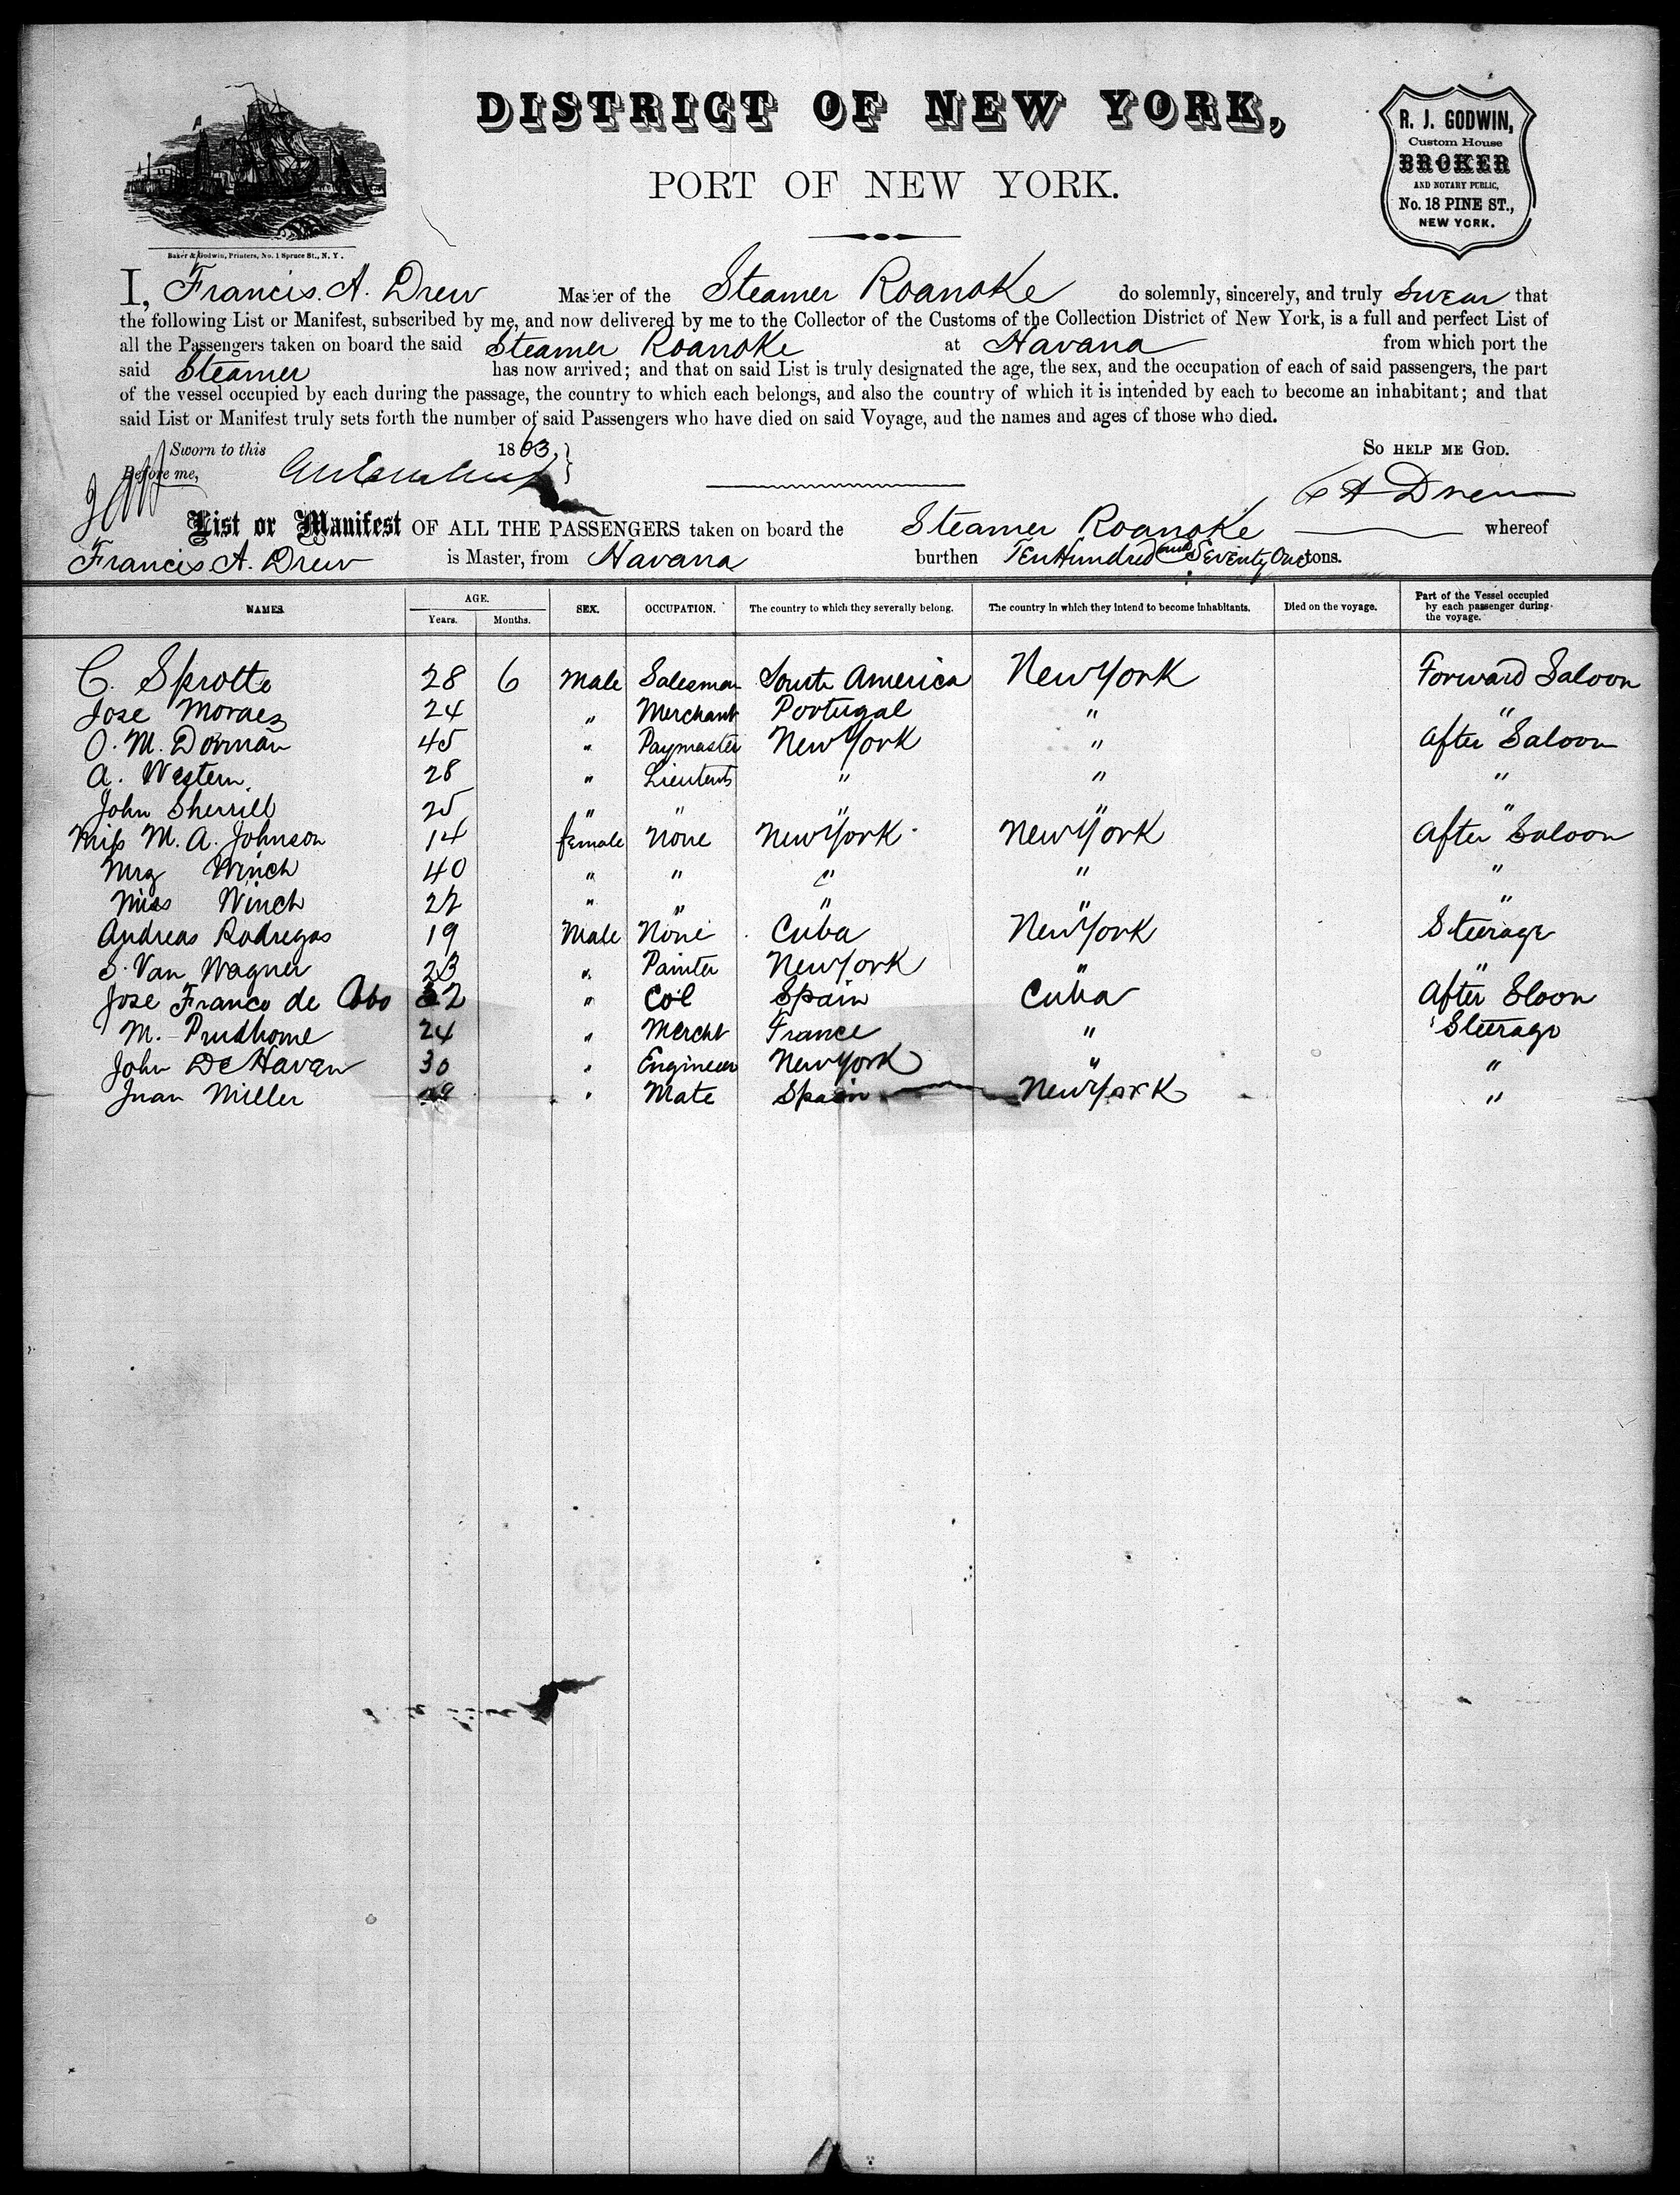 DISTRICT OF NEW YORK,
PORT OF NEW YORK.
R. J. GODWIN,
Custom House
BROKER
AND NOTARY PUBLIC,
No. 18 PINE ST.,
NEW YORK.
Baker & Godwin, Printers, No. 1 Spruce St., N. Y.
I, Francis. A. Drew Master of the Steamer Roanoke do solemnly, sincerely, and truly Swear that
the following List or Manifest, subscribed by me, and now delivered by me to the Collector of the Customs of the Collection District of New York, is a full and perfect List of
all the Passengers taken on board the said Steamer Roanoke at Havana from which port the
said Steamer has now arrived; and that on said List is truly designated the age, the sex, and the occupation of each of said passengers, the part
of the vessel occupied by each during the passage, the country to which each belongs, and also the country of which it is intended by each to become an inhabitant; and that
said List or Manifest truly sets forth the number of said Passengers who have died on said Voyage, and the names and ages of those who died.
Sworn to this 1863, SO HELP ME GOD.
Before me,
F A Drew
List or Manifest OF ALL THE PASSENGERS taken on board the Steamer Roanoke whereof
Francis. A. Drew is Master, from Havana burthen Ten Hundred and Seventy One tons.
NAMES. AGE. Years. Months. SEX. OCCUPATION. The country to which they severally belong. The country in which they intend to become inhabitants. Died on the voyage. Part of the Vessel occupied by each passenger during the voyage.
C. Sprotto 28 6 Male Salesman South America New York Forward Saloon
Jose Moraez 24 " Merchant Portugal " "
O. M. Dorman 45 " Paymaster New York " After Saloon
A. Western. 28 " Lieutent " " "
John Sherrill 25 " " " " "
Miss M. A. Johnson 14 female None New York New York After Saloon
Mrs Winch 40 " " " " "
Miss Winch 22 " " " " "
Andreas Rodregas 19 Male None Cuba New York Steerage
S. Van Wagner 23 " Painter New York " "
Jose Franco de Abo 32 " Col Spain Cuba After Sloon
M. Prudhome 24 " Mercht France " Steerage
John De Haven 30 " Engineer New York " "
Juan Miller " Mate Spain New York "